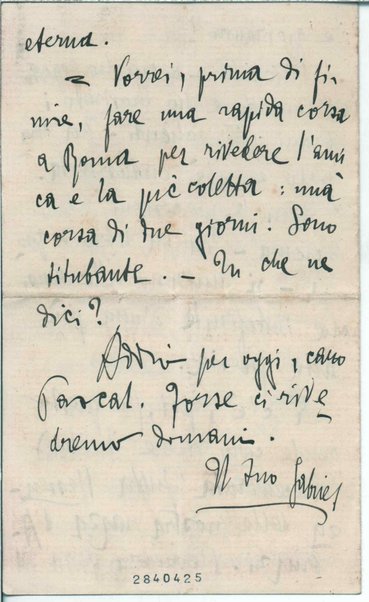 eterna.
= Vorrei, prima di fi-
nire, fare una rapida corsa
a Roma per rivedere l'ami
ca e la piccoletta: una
corsa di due giorni. Sono
titubante. — Tu che ne
dici?
Addio per oggi, caro
Pascal. Forse ci rive
dremo domani.
Il tuo Gabriel
2840425